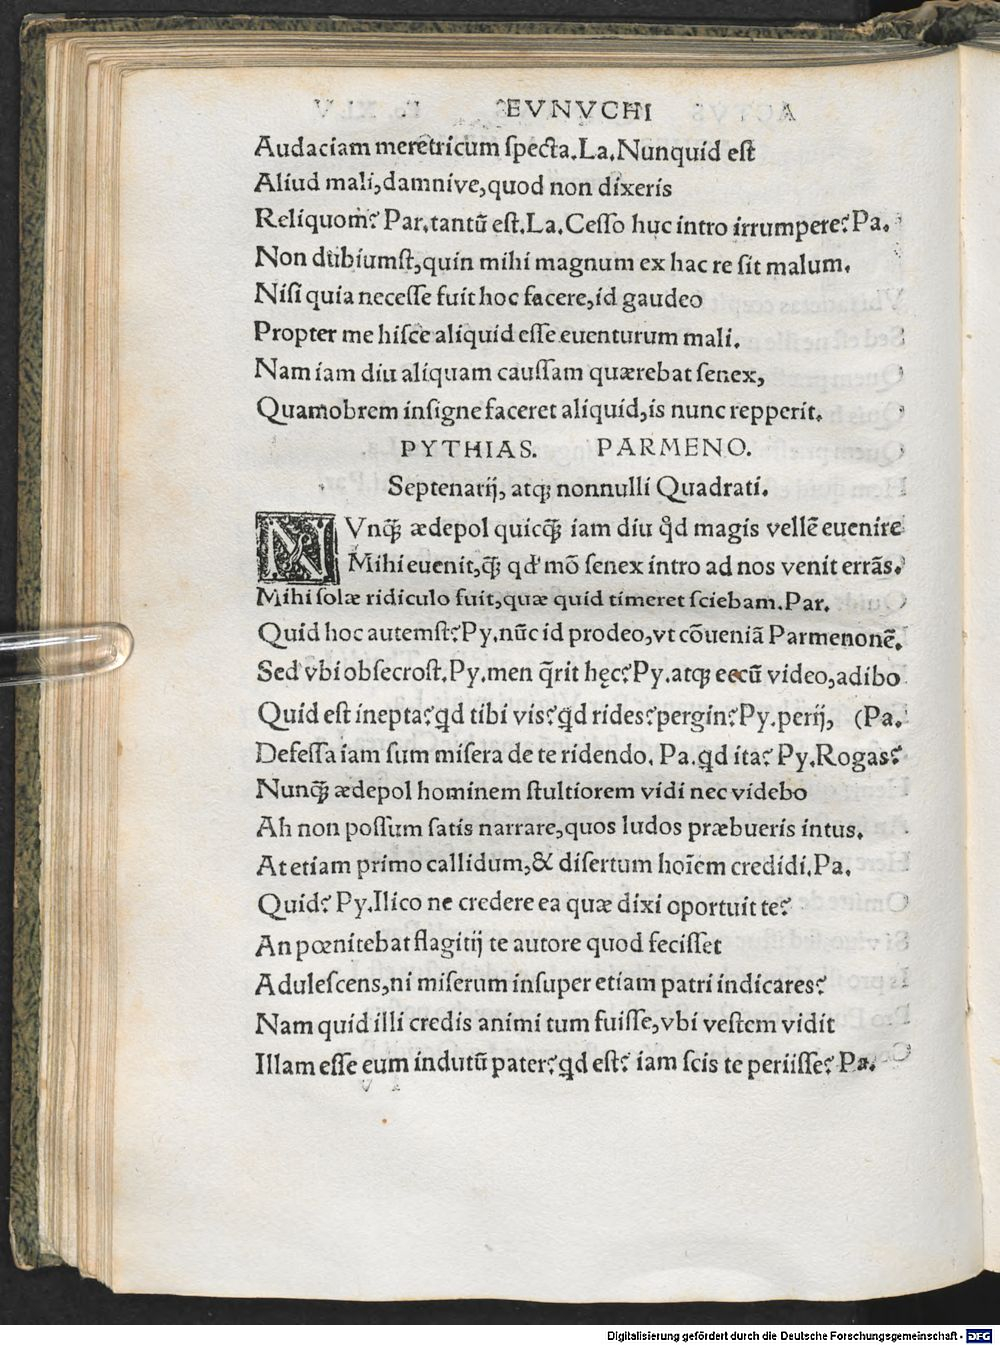 EVNVCHI
Audaciam meretricum ſpecta.La.Nunquid eſt
Aliud mali,damnive,quod non dixeris
Reliquom? Par.tantū eſt.La.Ceſſo huc intro irrumpere? Pa.
Non dubiumſt,quin mihi magnum ex hac re ſit malum.
Niſi quia neceſſe fuit hoc facere,id gaudeo
Propter me hiſce aliquid eſſe euenturum mali.
Nam iam diu aliquam cauſſam quærebat ſenex,
Quamobrem inſigne faceret aliquid,is nunc repperit.
PYTHIAS. PARMENO.
Septenarij, atqꝫ nonnulli Quadrati.
NVnqꝫ̃ ædepol quicqꝫ̃ iam diu qd̉ magis vellē euenire
Mihi euenit,qꝫ̃ qd' mō ſenex intro ad nos venit errās.
Mihi ſolæ ridiculo fuit,quæ quid timeret ſciebam.Par.
Quid hoc autemſt? Py.nūc id prodeo,vt cōueniā Parmenonē.
Sed vbi obſecroſt.Py.men q̄rit hęc? Py.atqꝫ eccū video,adibo
Quid eſt inepta? qd tibi vis? qd rides? pergin? Py.perij, (Pa.
Defeſſa iam ſum miſera de te ridendo. Pa.qd ita? Py.Rogas?
Nunqꝫ̃ ædepol hominem ſtultiorem vidi nec videbo
Ah non poſſum ſatis narrare,quos ludos præbueris intus.
At etiam primo callidum,& diſertum hoīem credidi.Pa.
Quid? Py.Ilico ne credere ea quæ dixi oportuit te?
An pœnitebat flagitij te autore quod feciſſet
Aduleſcens,ni miſerum inſuper etiam patri indicares?
Nam quid illi credis animi tum fuiſſe,vbi veſtem vidit
Illam eſſe eum indutū pater? qd eſt? iam ſcis te periiſſe? Pa.
Digitalisierung gefördert durch die Deutsche Forschungsgemeinschaft - DFG